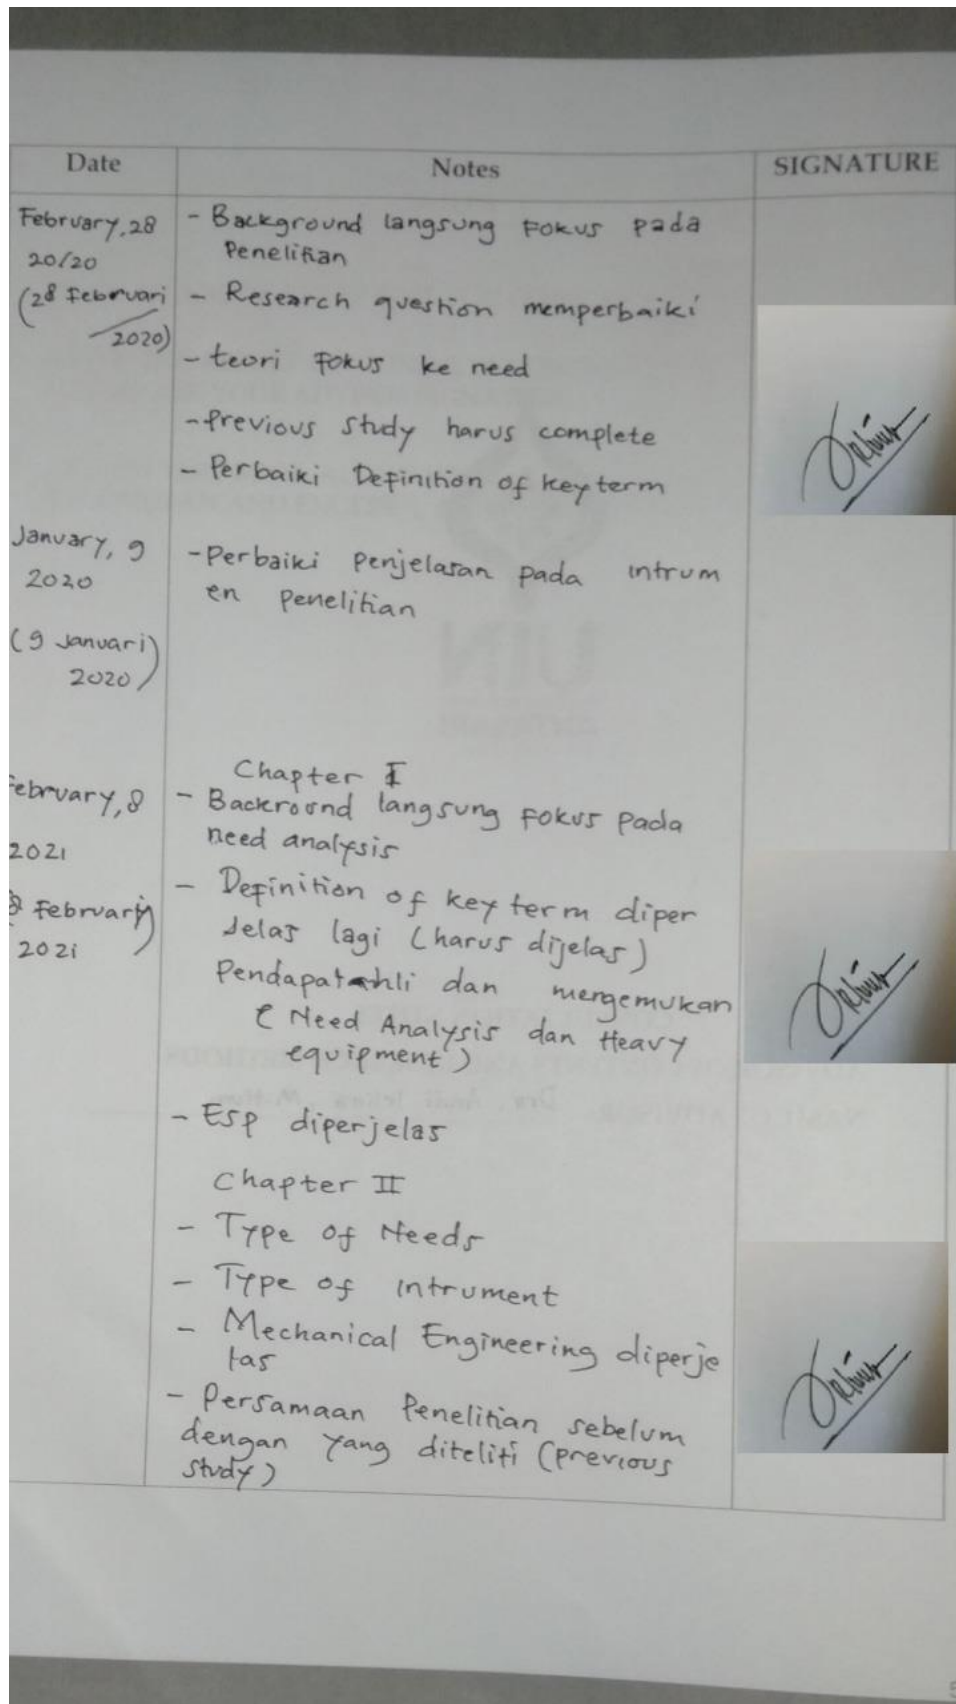 Date Notes SIGNATURE
February, 28 - Background langsung Fokus pada
20/20 Penelitian
(28 Februari - Research question memperbaiki
2020)
- teori Fokus ke need
- Previous study harus complete
- Perbaiki Definition of key term
January, 9 - Perbaiki Penjelasan pada intrum
2020 en penelitian
(9 Januari)
2020
Chapter I
February, 8 - Backround langsung Fokus pada
need analysis
2021
- Definition of key term diper
8 Februari jelas lagi (harus dijelas)
2021
Pendapat ahli dan mengemukan
(Need Analysis dan Heavy
equipment)
- Esp diperjelas
Chapter II
- Type of Needs
- Type of intrument
- Mechanical Engineering diperje
las
- Persamaan Penelitian sebelum
dengan yang diteliti (previous
study)